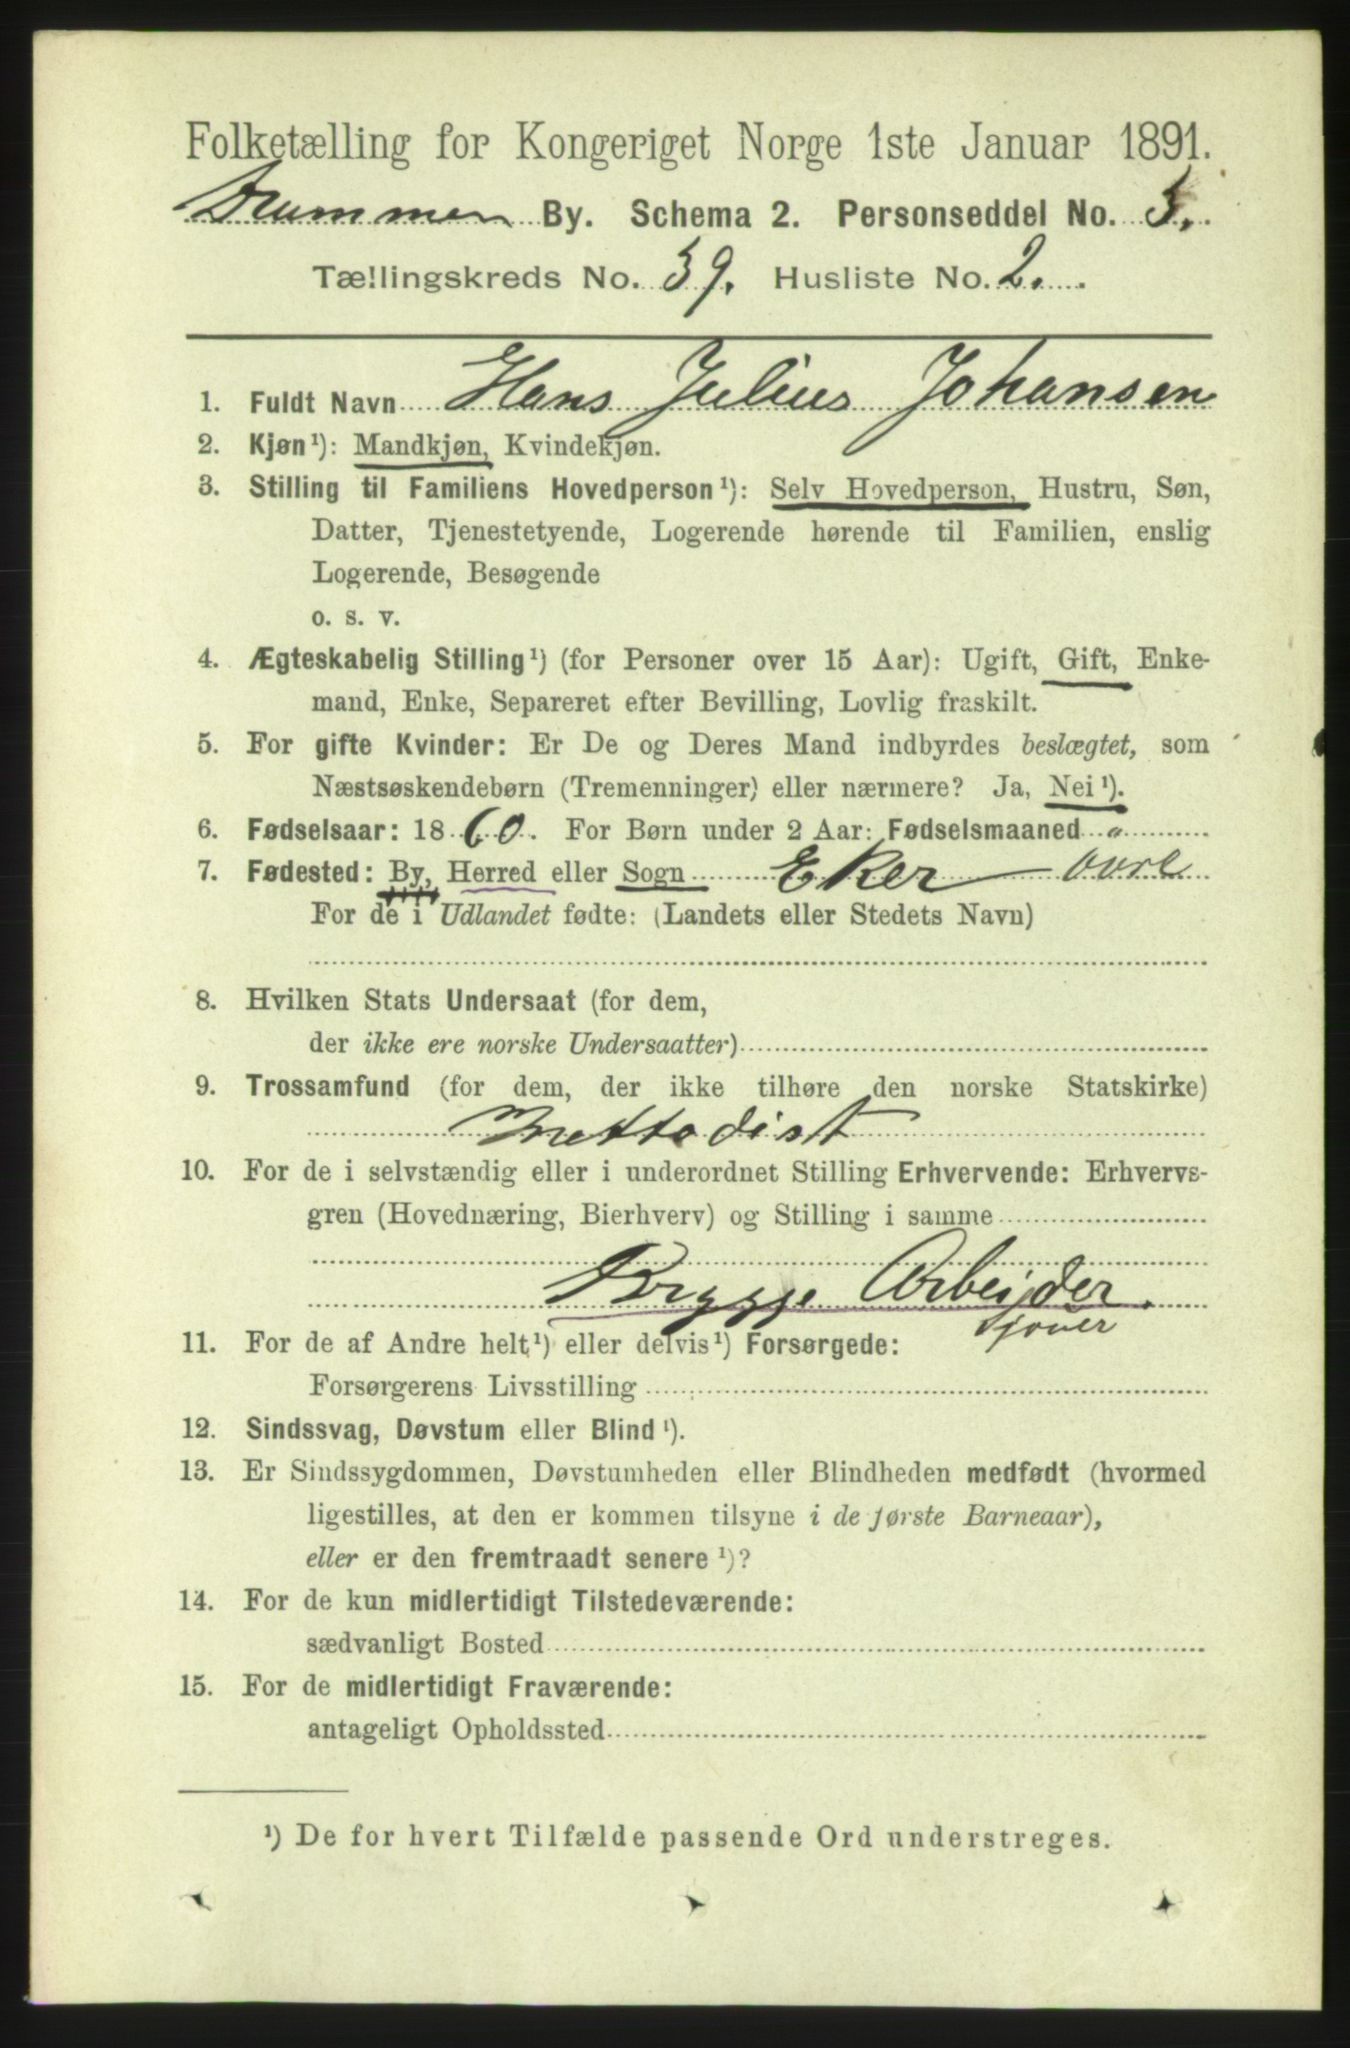 Folketælling for Kongeriget Norge 1ste Januar 1891.
Drammen By. Schema 2. Personseddel No. 5.
Tællingskreds No. 39. Husliste No. 2.
1. Fuldt Navn Hans Julius Johansen
2. Kjøn¹): Mandkjøn, Kvindekjøn.
3. Stilling til Familiens Hovedperson¹): Selv Hovedperson, Hustru, Søn,
Datter, Tjenestetyende, Logerende hørende til Familien, enslig
Logerende, Besøgende
o. s. v.
4. Ægteskabelig Stilling¹) (for Personer over 15 Aar): Ugift, Gift, Enke-
mand, Enke, Separeret efter Bevilling, Lovlig fraskilt.
5. For gifte Kvinder: Er De og Deres Mand indbyrdes beslægtet, som
Næstsøskendebørn (Tremenninger) eller nærmere? Ja, Nei¹).
6. Fødselsaar: 1860. For Børn under 2 Aar: Fødselsmaaned "
7. Fødested: By, Herred eller Sogn Eker øvre
For de i Udlandet fødte: (Landets eller Stedets Navn)
8. Hvilken Stats Undersaat (for dem,
der ikke ere norske Undersaatter)
9. Trossamfund (for dem, der ikke tilhøre den norske Statskirke)
Mettodist
10. For de i selvstændig eller i underordnet Stilling Erhvervende: Erhvervs-
gren (Hovednæring, Bierhverv) og Stilling i samme
Brygge Arbeijder.
sjouer
11. For de af Andre helt¹) eller delvis¹) Forsørgede:
Forsørgerens Livsstilling
12. Sindssvag, Døvstum eller Blind¹).
13. Er Sindssygdommen, Døvstumheden eller Blindheden medfødt (hvormed
ligestilles, at den er kommen tilsyne i de første Barneaar),
eller er den fremtraadt senere¹)?
14. For de kun midlertidigt Tilstedeværende:
sædvanligt Bosted
15. For de midlertidigt Fraværende:
antageligt Opholdssted
¹) De for hvert Tilfælde passende Ord understreges.